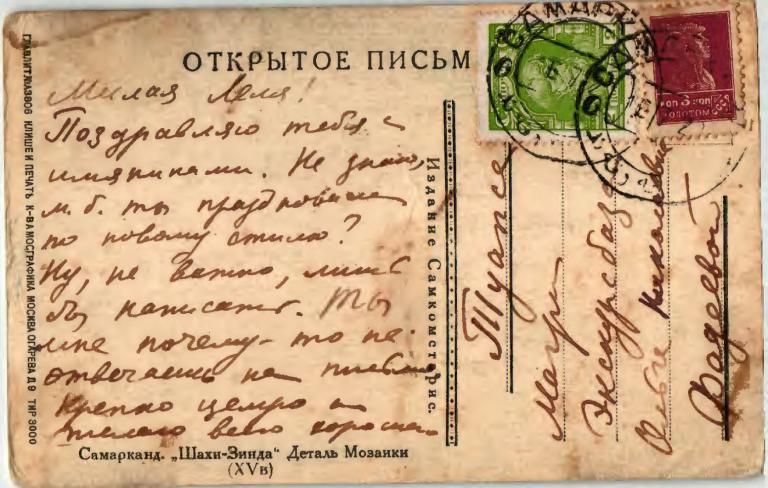 ОТКРЫТОЕ ПИСЬМ
Милая Леля!
Поздравляю тебя с
имянинами. Не знаю,
м.б. ты праздновала
по новому стилю?
Ну, не важно, лишь
бы написать. Ты
мне почему-то не
отвечаешь на письма
Крепко целую и
желаю всего хорошего
Самарканд. „Шахи-Зинда" Деталь Мозаики
(XVв)
ГЛАВЛИТ КЛИШЕ И ПЕЧАТЬ К-ВА МОСГРАФИКА МОСКВА ОГАРЕВА Д 9 ТИР 3000
Издание Самкомстариса.
Туапсе
Магри
Экскурсбаз
Ольге Николаевне
Фадеевой
САМАРК
3 КОП
ЗОЛОТОМ